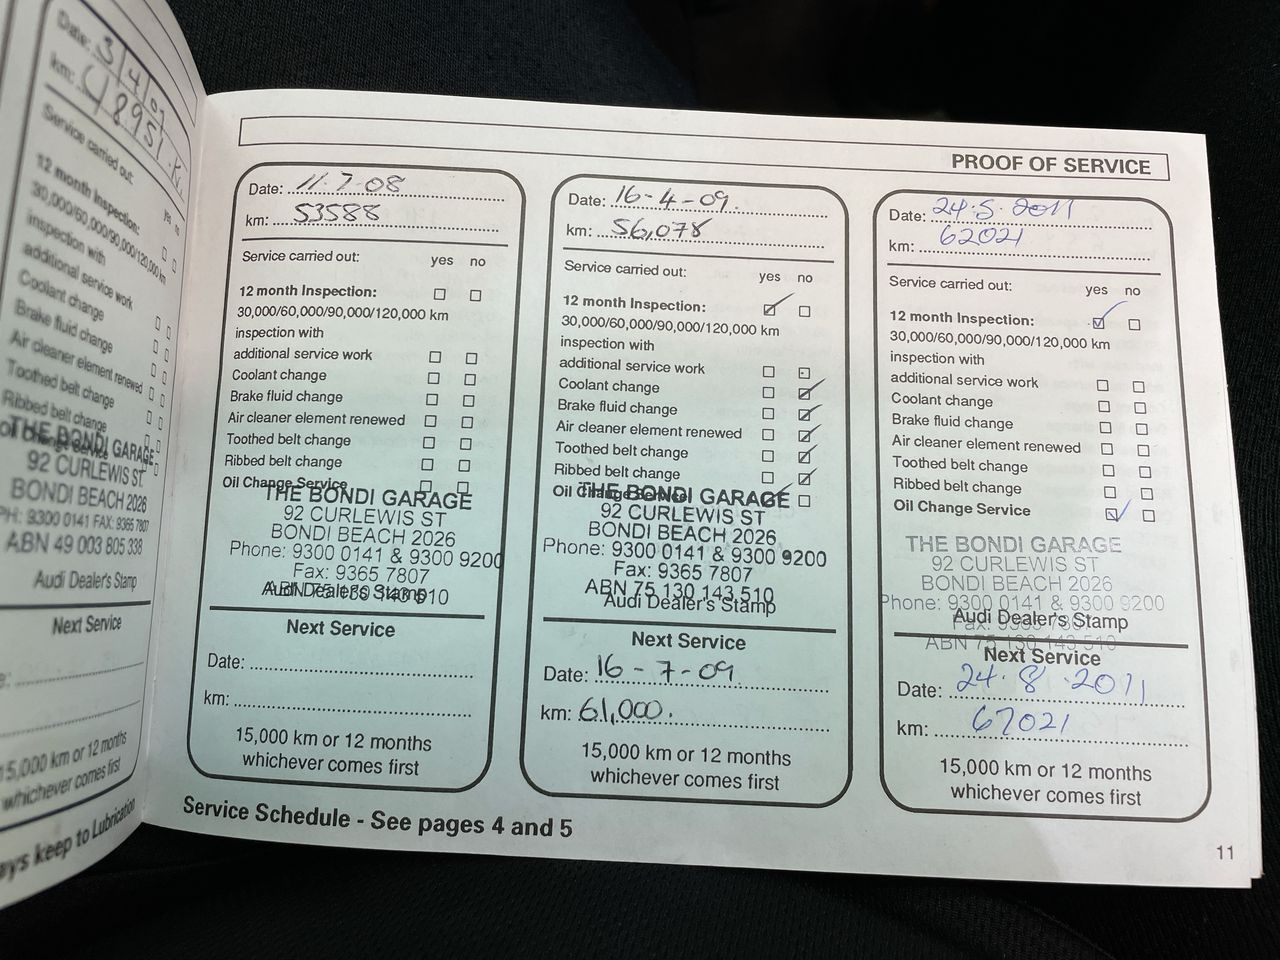 Date: 3 4 07
km: 48951 K
Service carried out:
yes no
12 month Inspection:
30,000/60,000/90,000/120,000 km
inspection with
additional service work
Coolant change
Brake fluid change
Air cleaner element renewed
Toothed belt change
Ribbed belt change
Oil Change Service
THE BONDI GARAGE
92 CURLEWIS ST.
BONDI BEACH 2026
PH: 9300 0141 FAX: 9365 7807
ABN 49 003 805 338
Audi Dealer's Stamp
Next Service
15,000 km or 12 months
whichever comes first
keep to Lubrication
PROOF OF SERVICE
Date: 11.7.08
km: 53588
Service carried out: yes no
12 month Inspection:
30,000/60,000/90,000/120,000 km
inspection with
additional service work
Coolant change
Brake fluid change
Air cleaner element renewed
Toothed belt change
Ribbed belt change
Oil Change Service
THE BONDI GARAGE
92 CURLEWIS ST
BONDI BEACH 2026
Phone: 9300 0141 & 9300 9200
Fax: 9365 7807
ABN 75 130 143 510
Audi Dealer's Stamp
Next Service
Date:
km:
15,000 km or 12 months
whichever comes first
Date: 16-4-09.
km: 56,078
Service carried out: yes no
12 month Inspection:
30,000/60,000/90,000/120,000 km
inspection with
additional service work
Coolant change
Brake fluid change
Air cleaner element renewed
Toothed belt change
Ribbed belt change
Oil Change Service
THE BONDI GARAGE
92 CURLEWIS ST
BONDI BEACH 2026
Phone: 9300 0141 & 9300 9200
Fax: 9365 7807
ABN 75 130 143 510
Audi Dealer's Stamp
Next Service
Date: 16-7-09
km: 61,000.
15,000 km or 12 months
whichever comes first
Date: 24.5.2011
km: 62021
Service carried out: yes no
12 month Inspection:
30,000/60,000/90,000/120,000 km
inspection with
additional service work
Coolant change
Brake fluid change
Air cleaner element renewed
Toothed belt change
Ribbed belt change
Oil Change Service
THE BONDI GARAGE
92 CURLEWIS ST
BONDI BEACH 2026
Phone: 9300 0141 & 9300 9200
Fax: 9365 7807
Audi Dealer's Stamp
ABN 75 130 143 510
Next Service
Date: 24.8.2011
km: 67021
15,000 km or 12 months
whichever comes first
Service Schedule - See pages 4 and 5
11